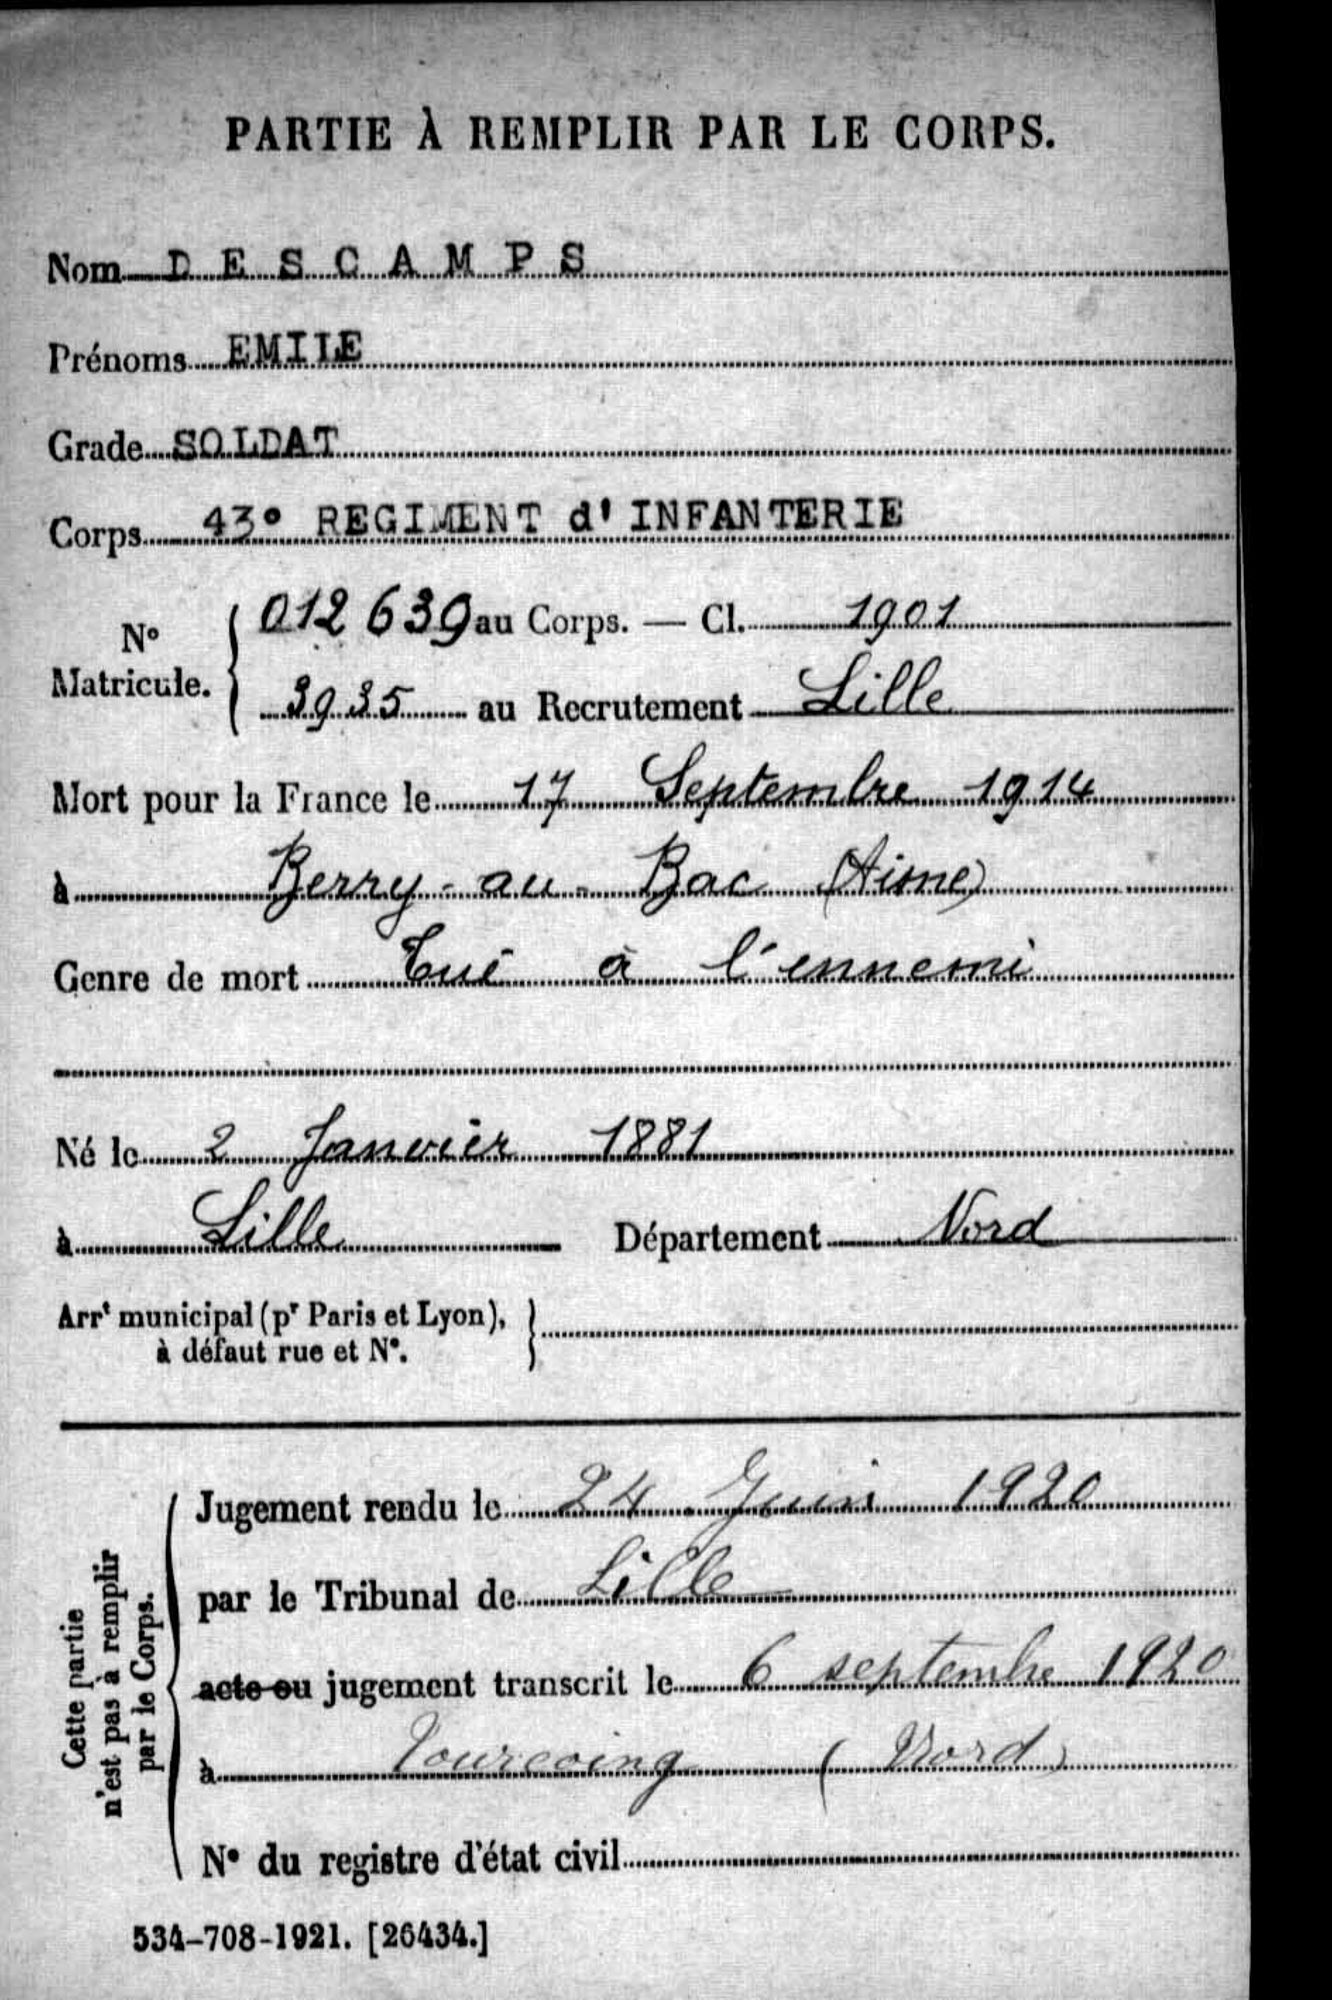 PARTIE À REMPLIR PAR LE CORPS.
Nom DESCAMPS
Prénoms EMILE
Grade SOLDAT
Corps 43° REGIMENT d'INFANTERIE
N° Matricule. 012 639 au Corps. — Cl. 1901
3935 au Recrutement Lille
Mort pour la France le 17 Septembre 1914
à Berry-au-Bac (Aisne)
Genre de mort Tué à l'ennemi
Né le 2 Janvier 1881
à Lille Département Nord
Arrt municipal (pr Paris et Lyon),
à défaut rue et N°.
Cette partie
n'est pas à remplir
par le Corps.
Jugement rendu le 24 Juin 1920
par le Tribunal de Lille
acte ou jugement transcrit le 6 septembre 1920
à Tourcoing (Nord)
N° du registre d'état civil
534-708-1921. [26434.]